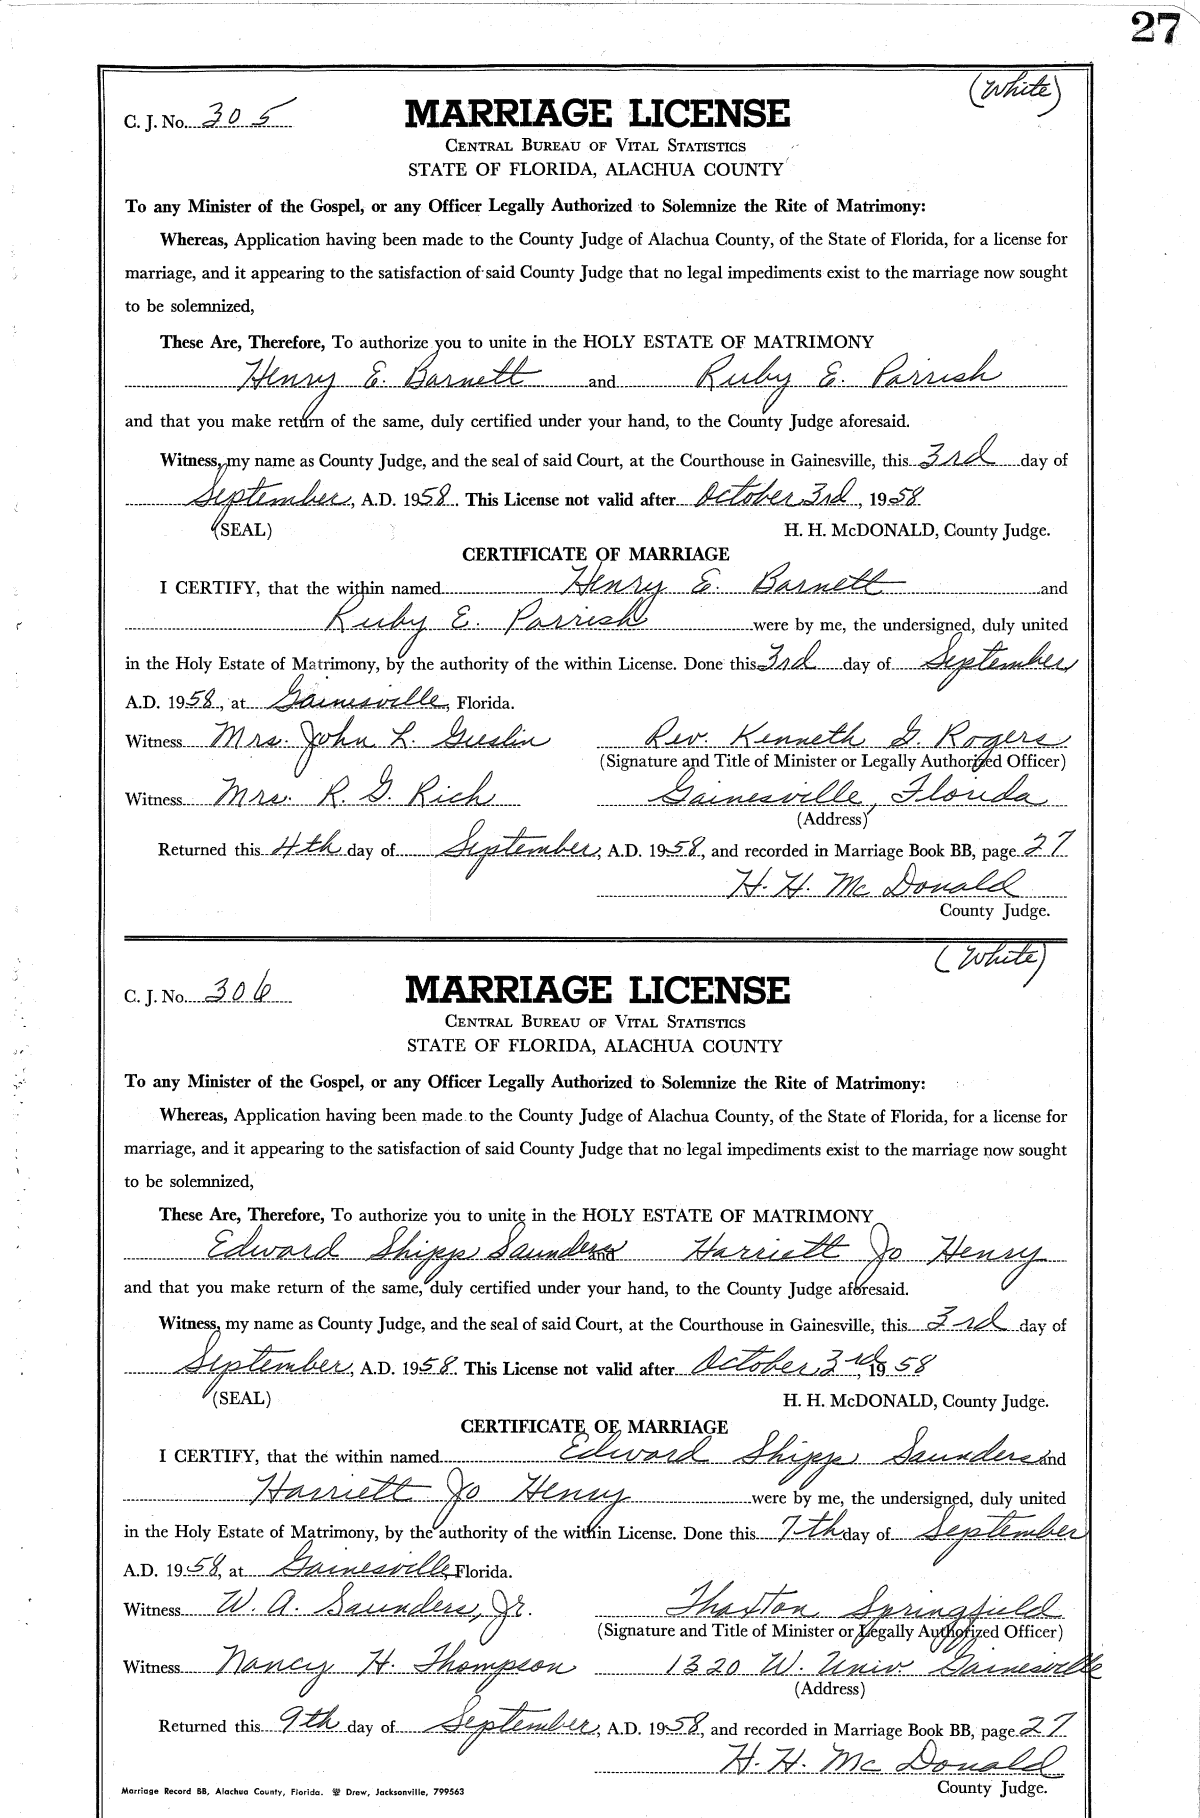 27
(White)
C. J. No. 305
MARRIAGE LICENSE
CENTRAL BUREAU OF VITAL STATISTICS
STATE OF FLORIDA, ALACHUA COUNTY
To any Minister of the Gospel, or any Officer Legally Authorized to Solemnize the Rite of Matrimony:
Whereas, Application having been made to the County Judge of Alachua County, of the State of Florida, for a license for
marriage, and it appearing to the satisfaction of said County Judge that no legal impediments exist to the marriage now sought
to be solemnized,
These Are, Therefore, To authorize you to unite in the HOLY ESTATE OF MATRIMONY
Henry E. Barnett and Ruby E. Parrish
and that you make return of the same, duly certified under your hand, to the County Judge aforesaid.
Witness, my name as County Judge, and the seal of said Court, at the Courthouse in Gainesville, this 3rd day of
September, A.D. 1958. This License not valid after October 3rd, 1958
(SEAL) H. H. McDONALD, County Judge.
CERTIFICATE OF MARRIAGE
I CERTIFY, that the within named Henry E. Barnett and
Ruby E. Parrish were by me, the undersigned, duly united
in the Holy Estate of Matrimony, by the authority of the within License. Done this 3rd day of September,
A.D. 1958, at Gainesville, Florida.
Witness Mrs. John L. Gieslin Rev. Kenneth G. Rogers
(Signature and Title of Minister or Legally Authorized Officer)
Witness Mrs. R. G. Rich Gainesville, Florida
(Address)
Returned this 4th day of September, A.D. 1958, and recorded in Marriage Book BB, page 27
H. H. McDonald
County Judge.
(White)
C. J. No. 306
MARRIAGE LICENSE
CENTRAL BUREAU OF VITAL STATISTICS
STATE OF FLORIDA, ALACHUA COUNTY
To any Minister of the Gospel, or any Officer Legally Authorized to Solemnize the Rite of Matrimony:
Whereas, Application having been made to the County Judge of Alachua County, of the State of Florida, for a license for
marriage, and it appearing to the satisfaction of said County Judge that no legal impediments exist to the marriage now sought
to be solemnized,
These Are, Therefore, To authorize you to unite in the HOLY ESTATE OF MATRIMONY
Edward Shipp Saunders and Harriett Jo Henry
and that you make return of the same, duly certified under your hand, to the County Judge aforesaid.
Witness, my name as County Judge, and the seal of said Court, at the Courthouse in Gainesville, this 3rd day of
September, A.D. 1958. This License not valid after October 3rd, 1958
(SEAL) H. H. McDONALD, County Judge.
CERTIFICATE OF MARRIAGE
I CERTIFY, that the within named Edward Shipp Saunders and
Harriett Jo Henry were by me, the undersigned, duly united
in the Holy Estate of Matrimony, by the authority of the within License. Done this 7th day of September
A.D. 1958, at Gainesville, Florida.
Witness W. A. Saunders, Jr. Thaxton Springfield
(Signature and Title of Minister or Legally Authorized Officer)
Witness Nancy H. Thompson 1320 W. Univ. Gainesville
(Address)
Returned this 9th day of September, A.D. 1958, and recorded in Marriage Book BB, page 27
H. H. McDonald
County Judge.
Marriage Record BB, Alachua County, Florida. Drew, Jacksonville, 799563